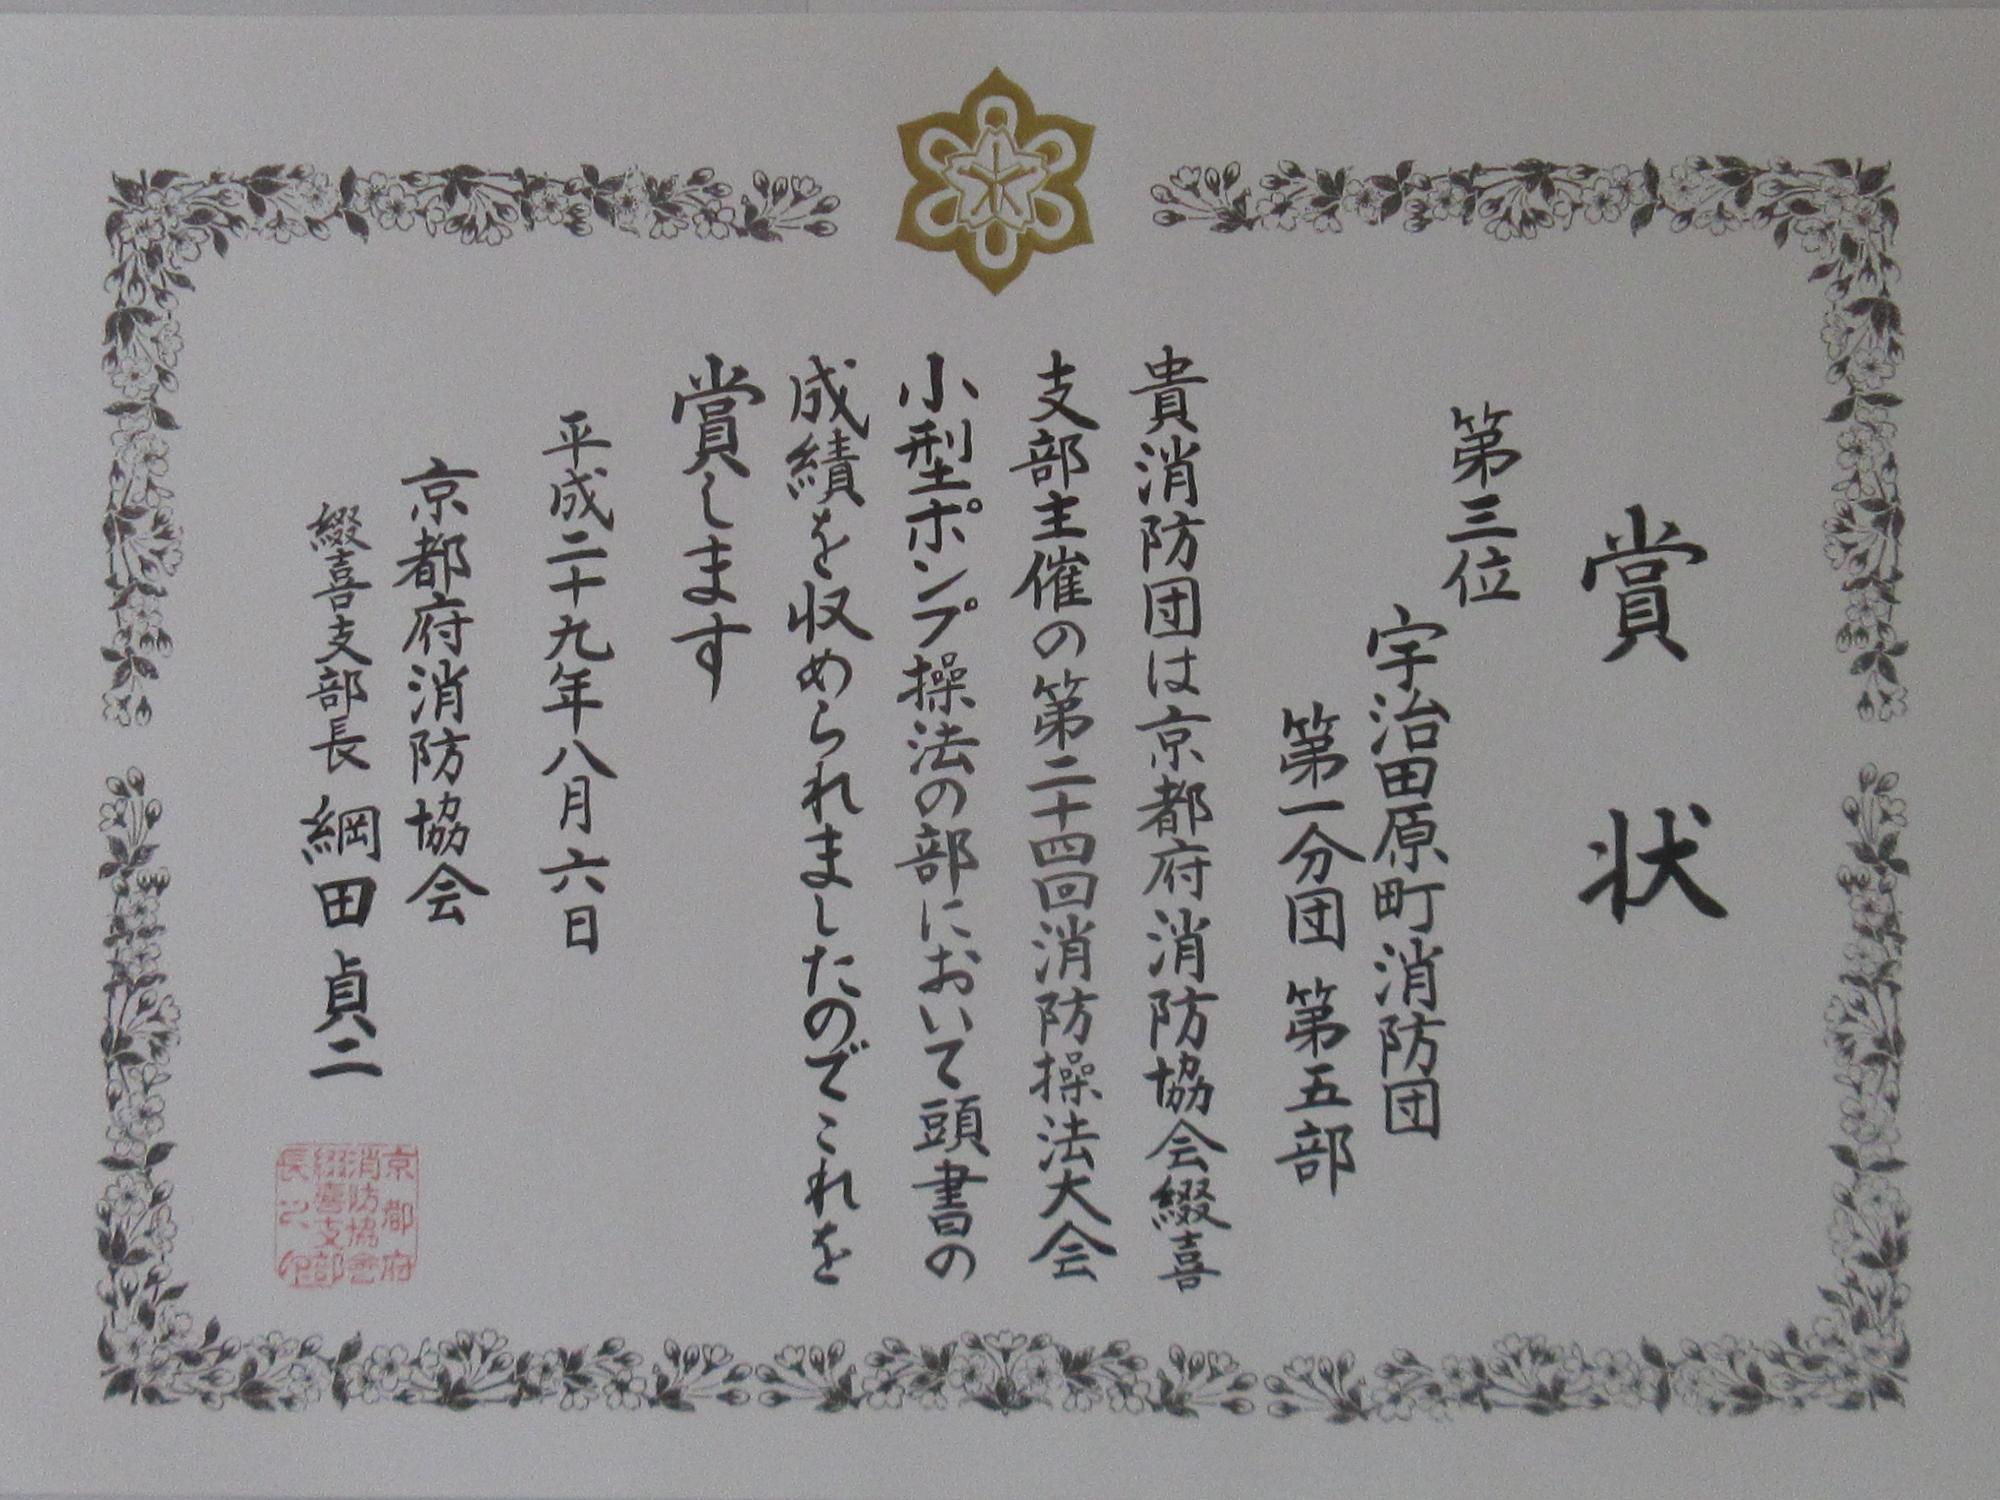 賞状
第三位
宇治田原町消防団
第一分団 第五部
貴消防団は京都府消防協会綴喜
支部主催の第二十四回消防操法大会
小型ポンプ操法の部において頭書の
成績を収められましたのでこれを
賞します
平成二十九年八月六日
京都府消防協会
綴喜支部長 綱田貞二
京都府
消防協会
綴喜支部
長之印